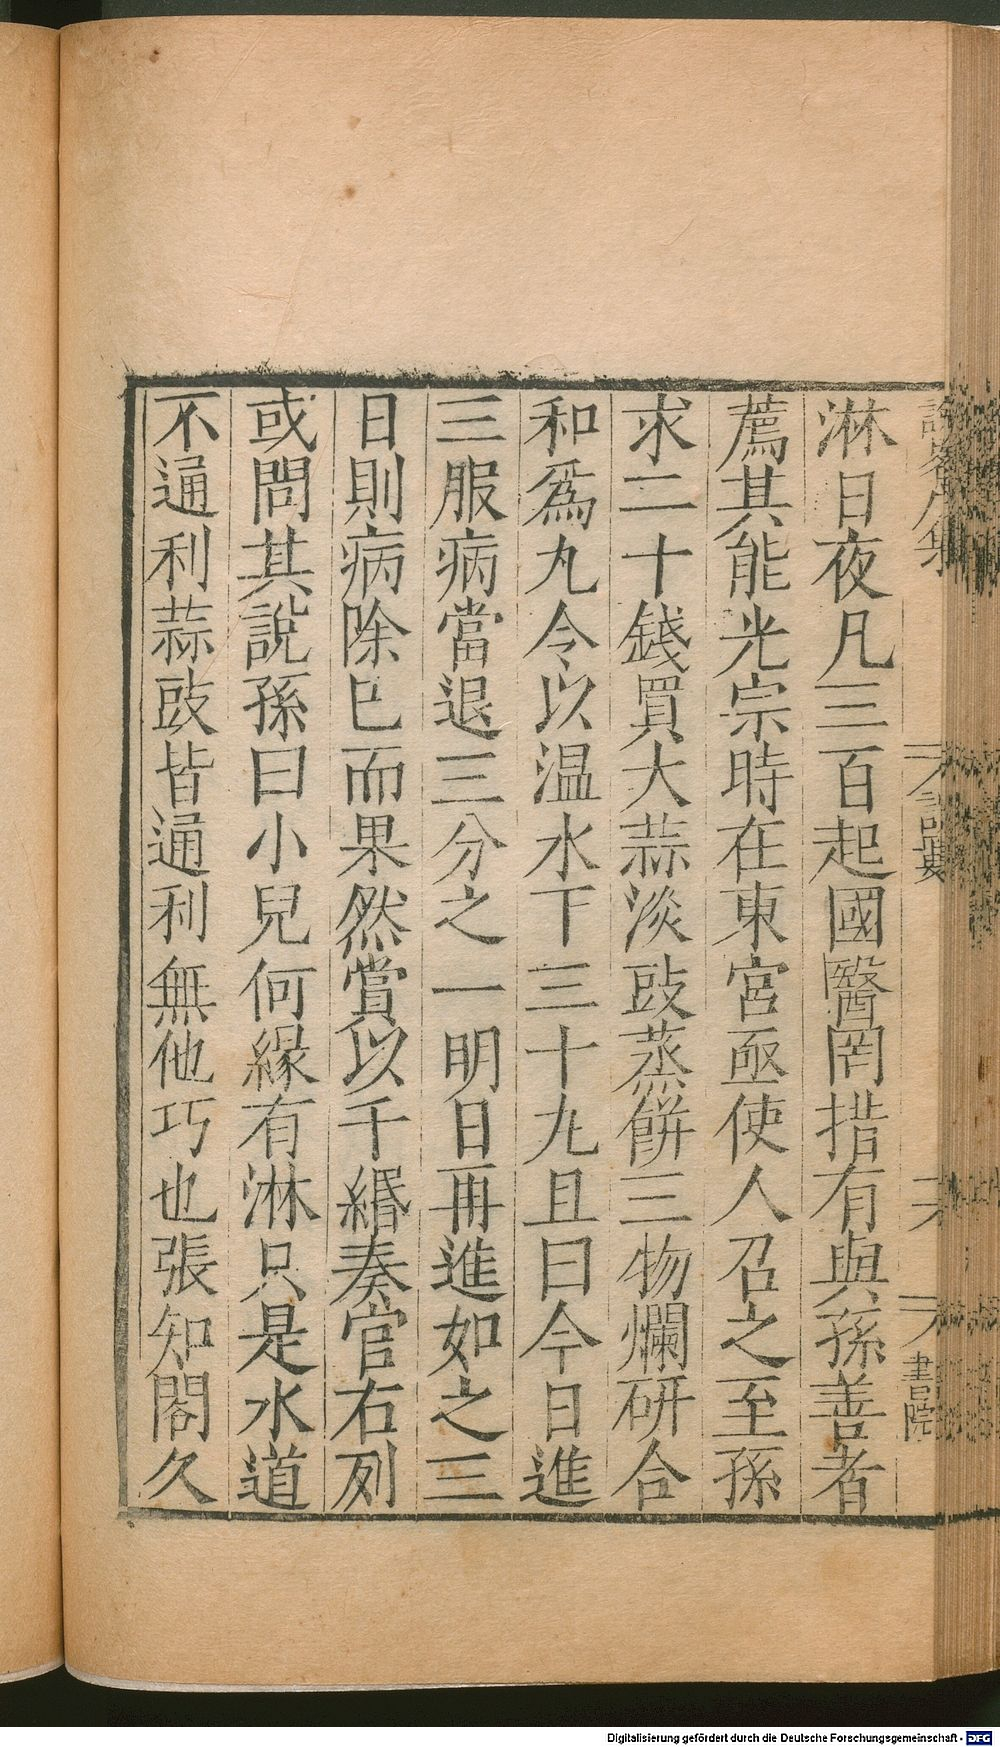 淋日夜凡三百起國醫罔措有與孫善者
薦其能光宗時在東宮亟使人召之至孫
求二十錢買大蒜淡豉蒸餅三物爛研合
和爲丸令以温水下三十丸且曰今日進
三服病當退三分之一明日再進如之三
日則病除已而果然賞以千緡奏官右列
或問其說孫曰小兒何緣有淋只是水道
不通利蒜豉皆通利無他巧也張知閣久
書院
Digitalisierung gefördert durch die Deutsche Forschungsgemeinschaft - DFG